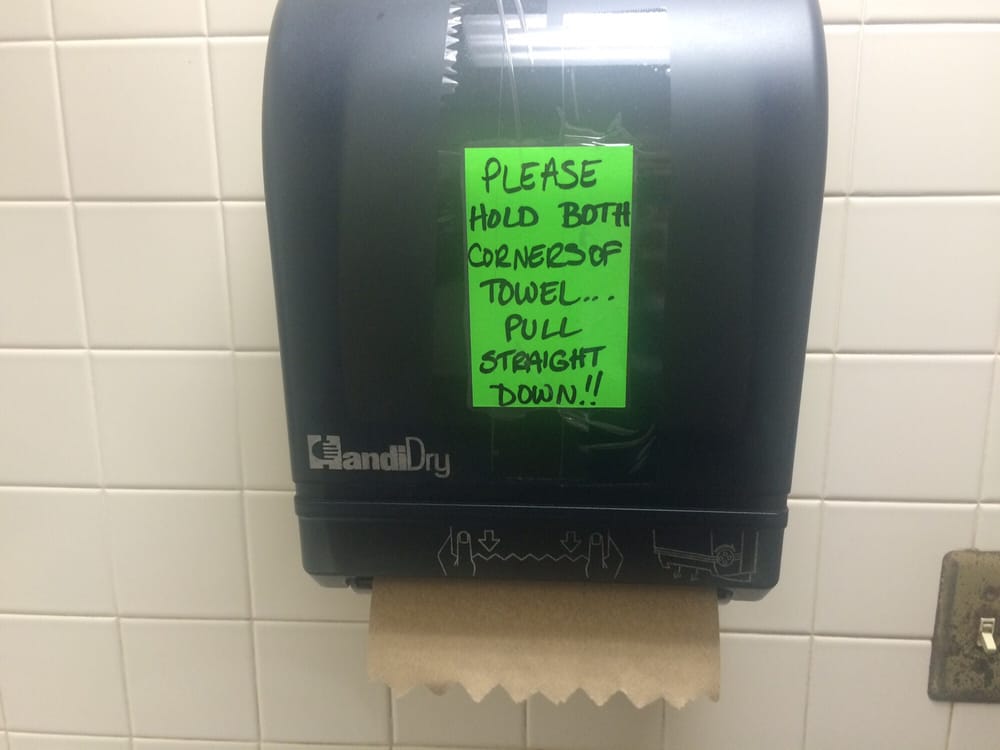 PLEASE
HOLD BOTH
CORNERS OF
TOWEL...
PULL
STRAIGHT
DOWN!!
HandiDry